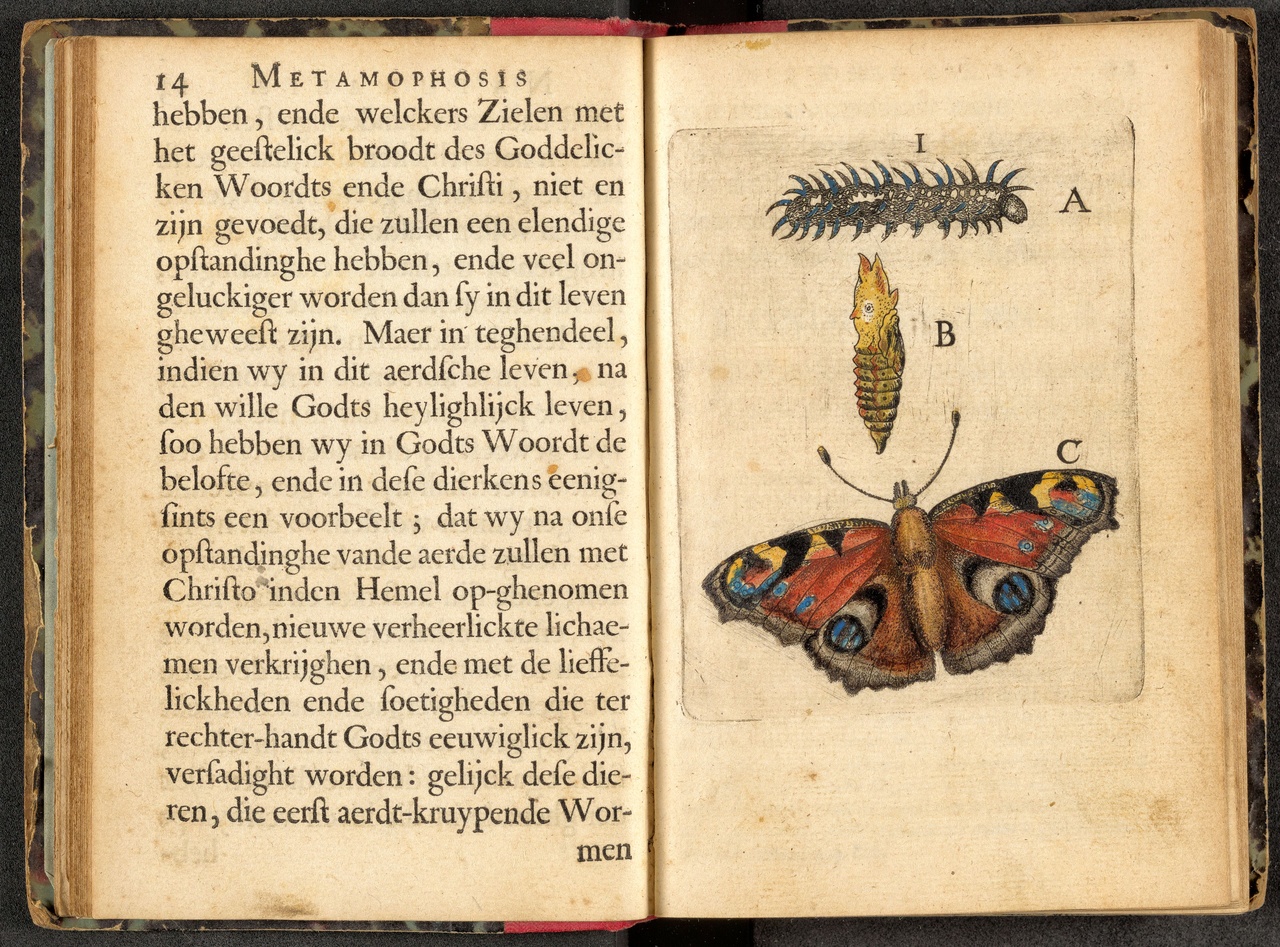 14 METAMOPHOSIS
hebben, ende welckers Zielen met
het geeſtelick broodt des Goddelic-
ken Woordts ende Chriſti, niet en
zijn gevoedt, die zullen een elendige
opſtandinghe hebben, ende veel on-
geluckiger worden dan ſy in dit leven
gheweeſt zijn. Maer in teghendeel,
indien wy in dit aerdſche leven, na
den wille Godts heylighlijck leven,
ſoo hebben wy in Godts Woordt de
belofte, ende in deſe dierkens eenig-
ſints een voorbeelt; dat wy na onſe
opſtandinghe vande aerde zullen met
Chriſto inden Hemel op-ghenomen
worden, nieuwe verheerlickte lichae-
men verkrijghen, ende met de lieffe-
lickheden ende ſoetigheden die ter
rechter-handt Godts eeuwiglick zijn,
verſadight worden: gelijck deſe die-
ren, die eerſt aerdt-kruypende Wor-
men
I
A
B
C